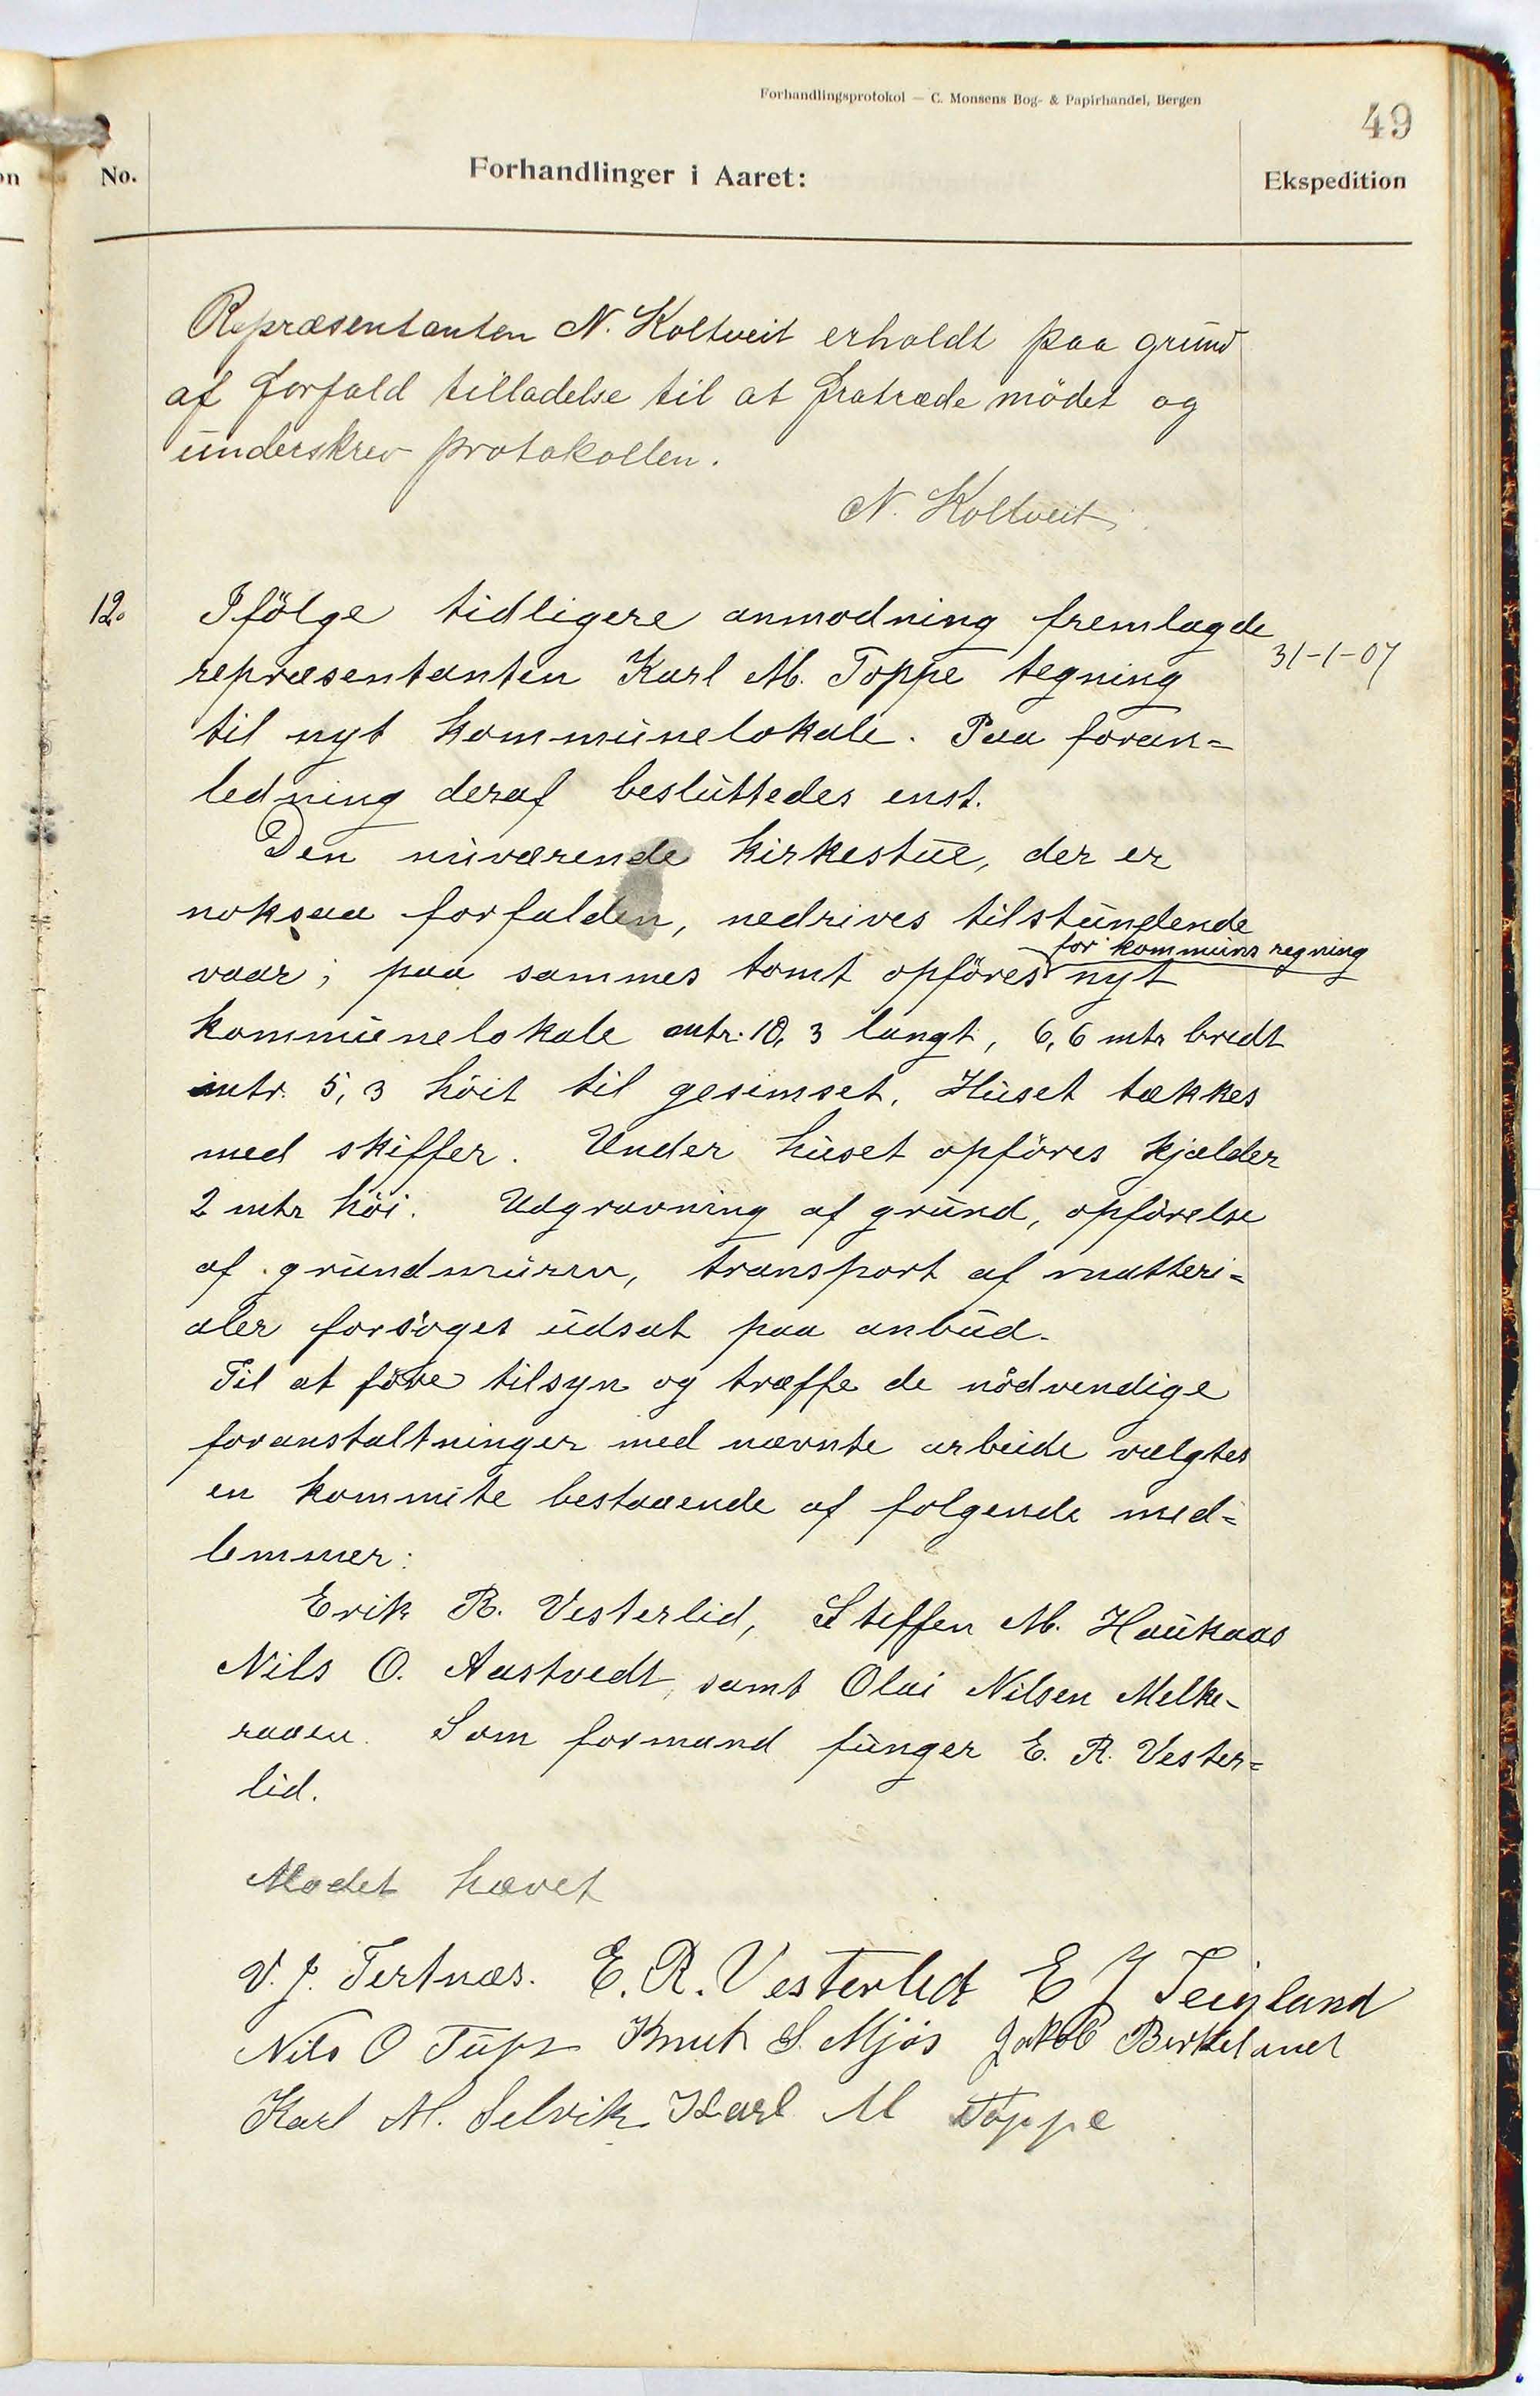 Forhandlingsprotokol — C. Monsens Bog- & Papirhandel, Bergen
49
No.
Forhandlinger i Aaret:
Ekspedition
Repræsentanten N. Koltveit erholdt paa grund
af forfald tilladelse til at fratræde mödet og
underskrev protokollen.
N. Koltveit
12. Ifölge tidligere anmodning fremlagde
31-1-07
repræsentanten Karl M. Toppe tegning
til nyt kommunelokale. Paa foran=
ledning deraf besluttedes enst.
Den nuværende kirkestue, der er
noksaa forfalden, nedrives tilstundende
for kommuns regning
vaar; paa sammes tomt opföres nyt
kommunelokale mtr. 10,3 langt, 6,6 mtr bredt
mtr. 5,3 höit til gesimset. Huset tækkes
med skiffer. Under huset opföres kjælder
2 mtr höi. Udgravning af grund, opförelse
af grundmuren, transport af matteri=
aler forsöges udsat paa anbud.
Til at före tilsyn og træffe de nödvendige
foranstaltninger med nævnte arbeide vælgtes
en kommite bestaaende af folgende med=
lemmer:
Erik R. Vesterlid, Steffen M. Haukaas
Nils O. Aastvedt, samt Olai Nilsen Melke-
raaen. Som formand funger E. R. Vester=
lid.
Modet hævet
V. J. Tertnæs. E. R. Vesterlid E J Teigland
Nils O Knut S. Mjös Jakob Birkeland
Karl M. Selvik Karl M Toppe